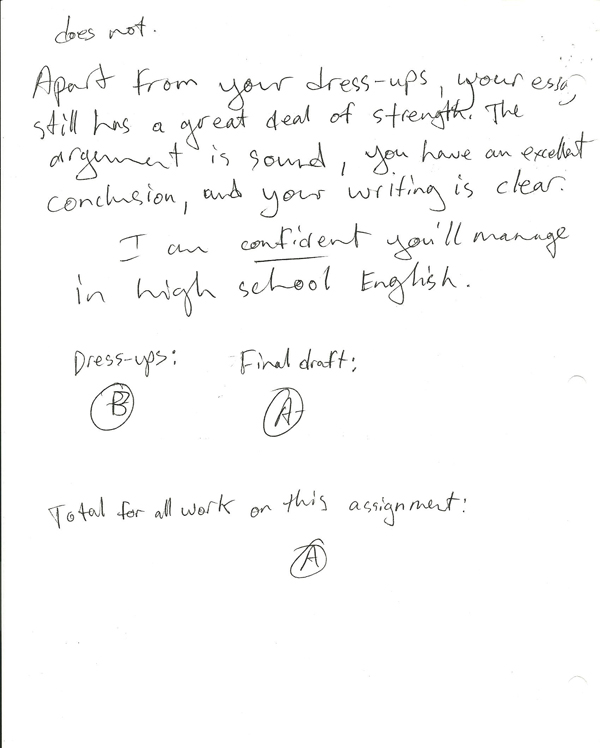 does not.
Apart from your dress-ups, your essay
still has a great deal of strength. The
argument is sound, you have an excellent
conclusion, and your writing is clear.
I am confident you'll manage
in high school English.
Dress-ups: Final draft:
B A-
Total for all work on this assignment:
A